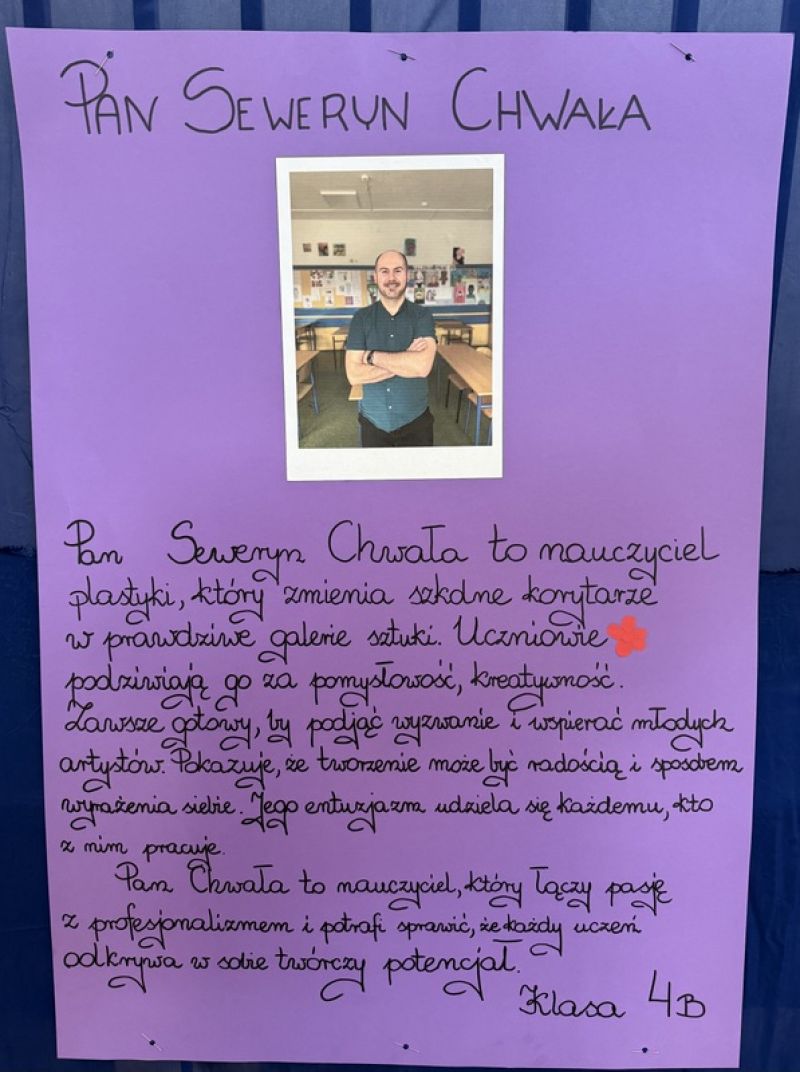 PAN SEWERYN CHWAŁA
Pan Seweryn Chwała to nauczyciel
plastyki, który zmienia szkolne korytarze
w prawdziwe galerie sztuki. Uczniowie
podziwiają go za pomysłowość, kreatywność.
Zawsze gotowy, by podjąć wyzwanie i wspierać młodych
artystów. Pokazuje, że tworzenie może być radością i sposobem
wyrażenia siebie. Jego entuzjazm udziela się każdemu, kto
z nim pracuje.
Pan Chwała to nauczyciel, który łączy pasję
z profesjonalizmem i potrafi sprawić, że każdy uczeń
odkrywa w sobie twórczy potencjał.
Klasa 4B